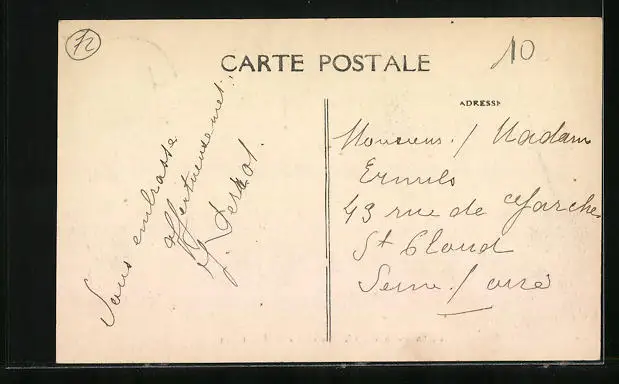 72
10
CARTE POSTALE
ADRESSE
Vous embrasse
affectueusement
J.
Monsieur / Madam
43 rue de
St Cloud
Seine / oise